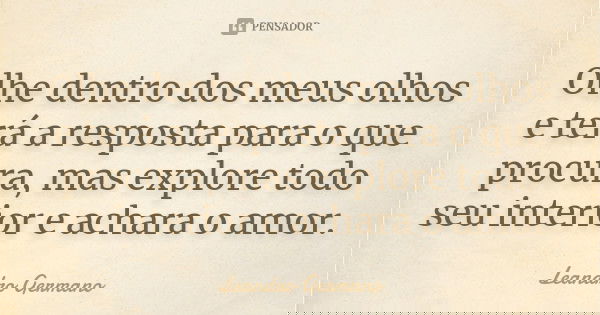 PENSADOR
Olhe dentro dos meus olhos
e terá a resposta para o que
procura, mas explore todo
seu interior e achara o amor.
Leandro Germano